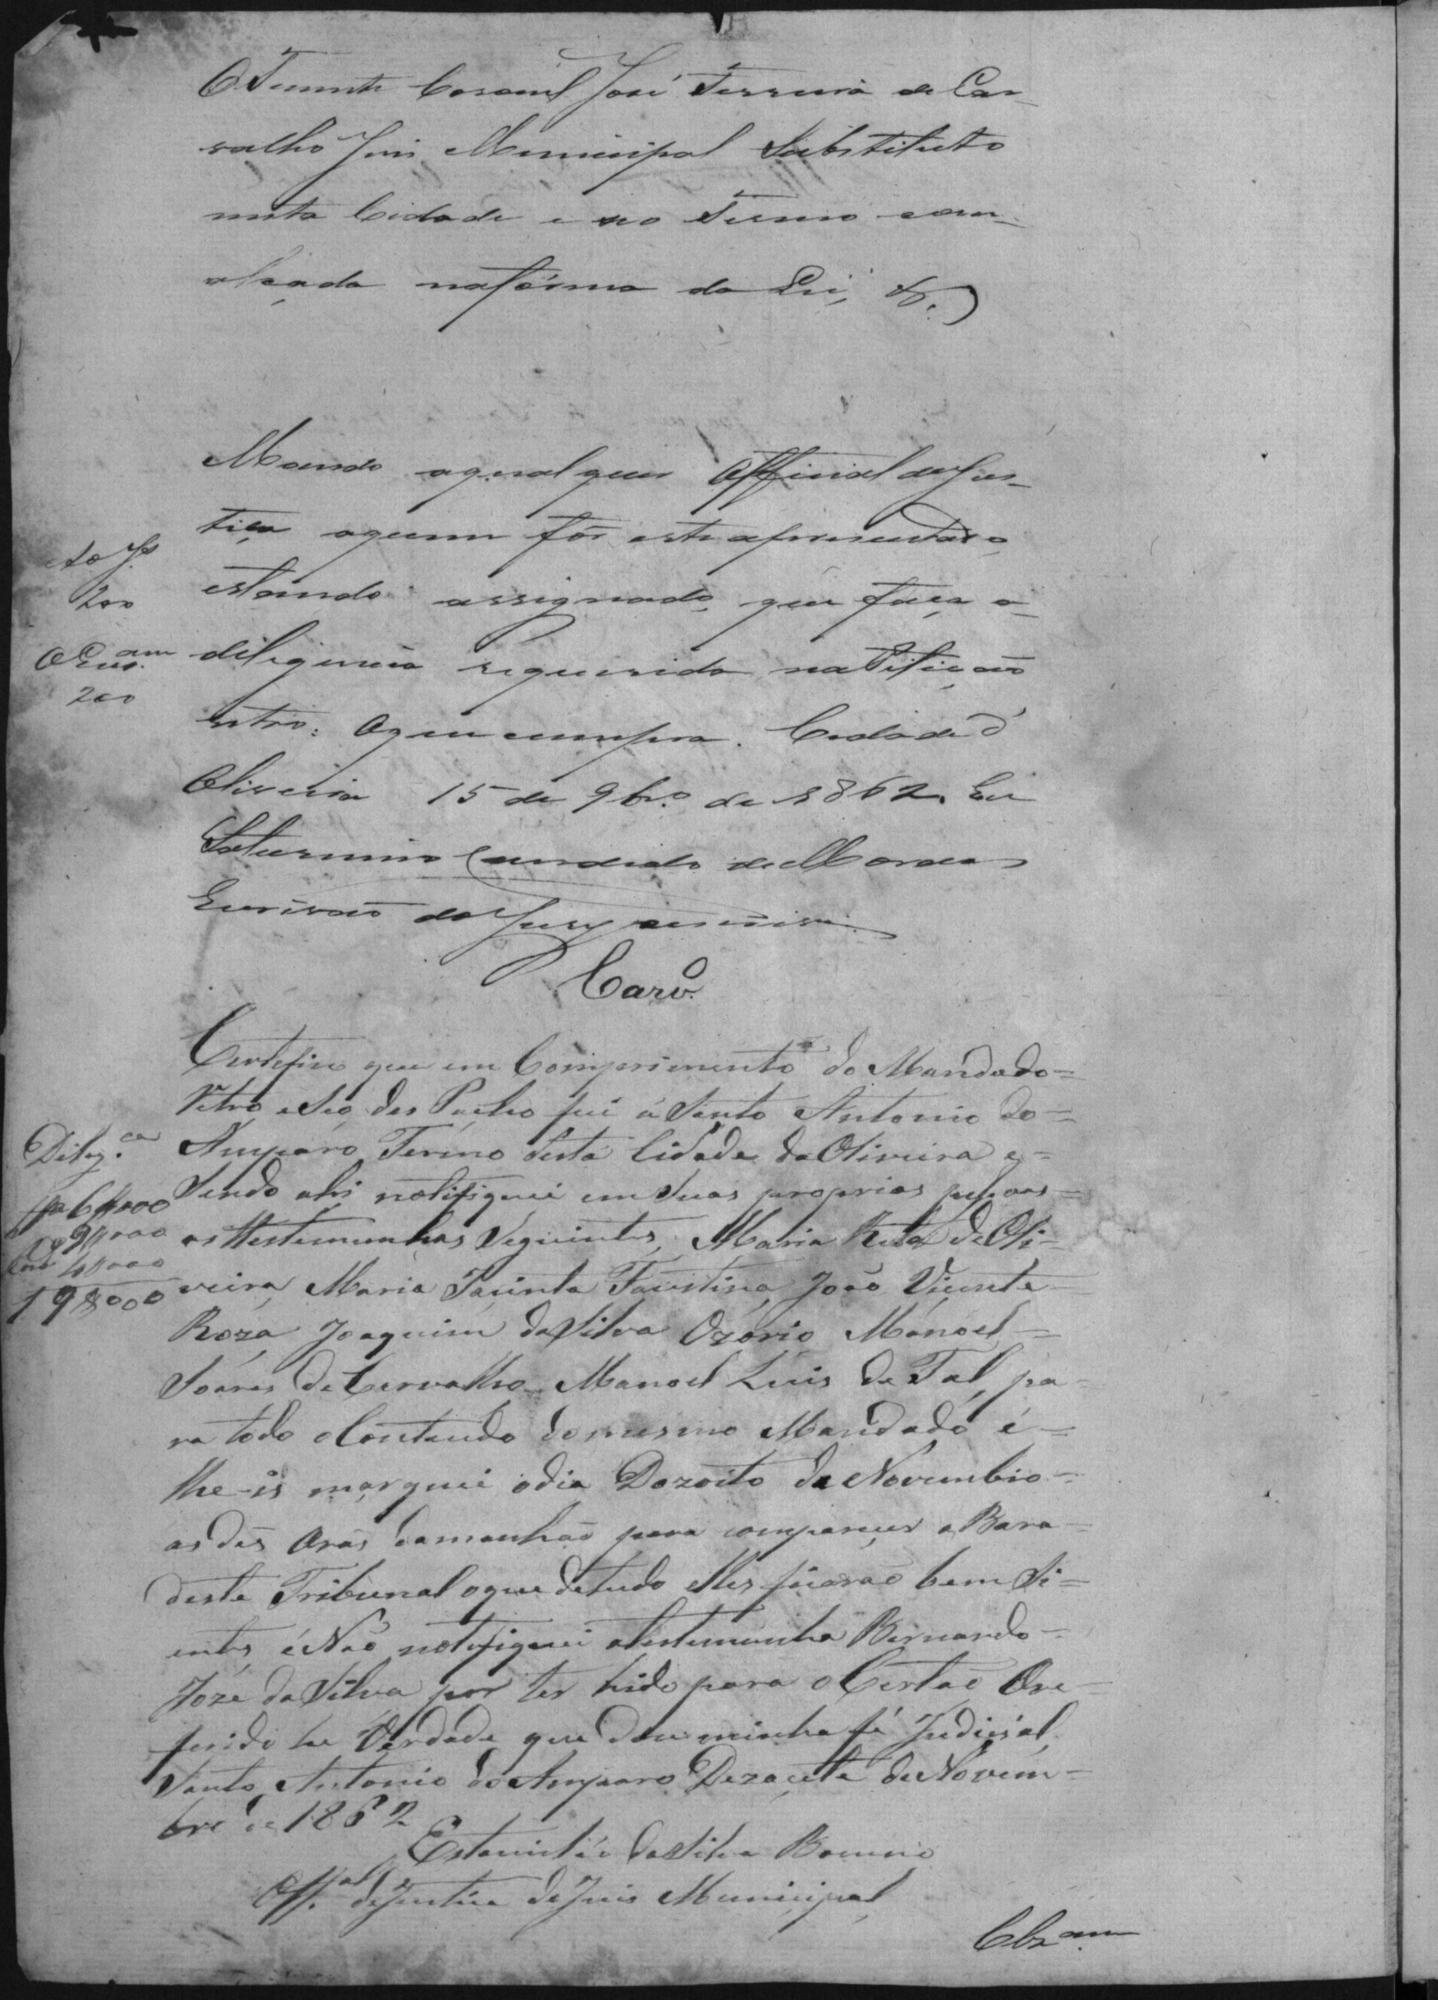 O Tenente Coronel José Ferreira de Car-
valho Juis Municipal Substituto
nesta Cidade e no Termo com
alçada na fórma da Lei, &.
Mando aqualquer Official de Jus-
tiça aquem fôr este apresentado e
estando assignado, que faça a
deligencia requerida na Petição
retro: O que cumpra. Cidade d'
Oliveira 15 de 9br.o de 1862. Eu
Saturnino Candido de Moraes
Escrivaõ do Jury
Carv.o
Ao J.
200
Ao Escr.am
200
Certefico que em Comprimento do Mandado=
Retro e Seo des Pacho fui á Santo Antonio do=
Amparo Termo desta Cidade da Oliveira e=
Sendo ahi notifiquei em Suas proprias pesoas=
as testemunhas Seguintes, Maria Rita de Oli-
veira, Maria Jacinta Faustina, João Vicente
Roza, Joaquim da Silva Ozório, Manoel=
Soares de Carvalho, Manoel Luis de Tal, pa-
ra todo o Contendo do mesmo Mandado é=
lhe-is marquei o dia Dozoito de Novembro=
as dés Oras damanhaõ para compareçer a Bara=
deste Tribunal o que detudo elles ficaraõ bem Si=
entes, é Não notifiquei a testemunha Bernardo=
Joze da Silva por ter hido para o Certaõ O re-
ferido he Verdade que dou minha fé Judicial
Santo Antonio do Amparo Dezacete de Novem=
bre de 1862
Estanisláo da Silva
Off.al de Justica de Juis Municipal
Dilig.ca
6$000
9$000
4$000
19$000
Clz.am